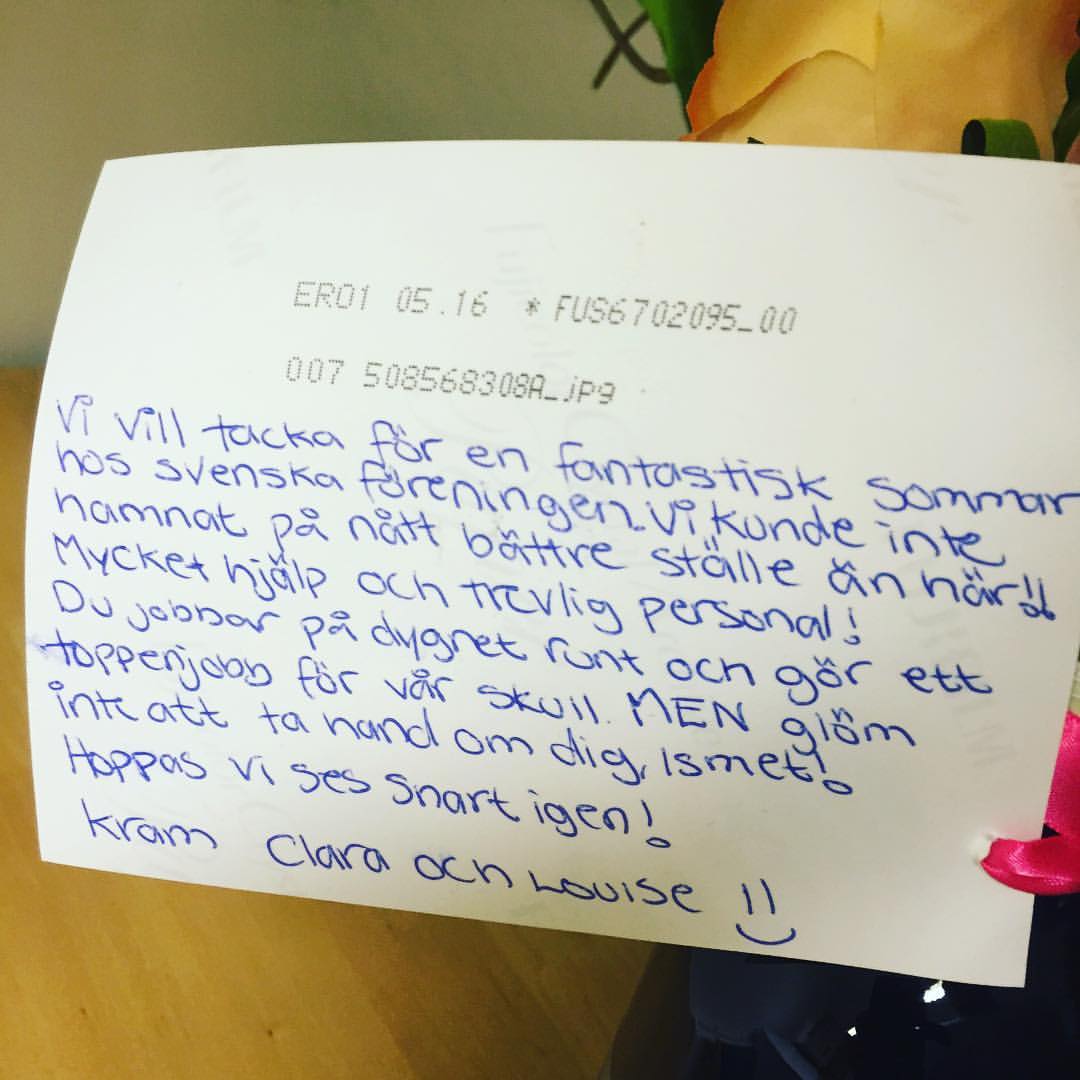 ER01 05.16 * FUS6702095_00
007 508568308A_jpg
Vi vill tacka för en fantastisk sommar
hos svenska föreningen. Vi kunde inte
hamnat på nått bättre ställe än här!!
Mycket hjälp och trevlig personal!
Du jobbar på dygnet runt och gör ett
toppenjobb för vår skull. MEN glöm
inte att ta hand om dig, Ismet!
Hoppas vi ses snart igen!
Kram Clara och Louise